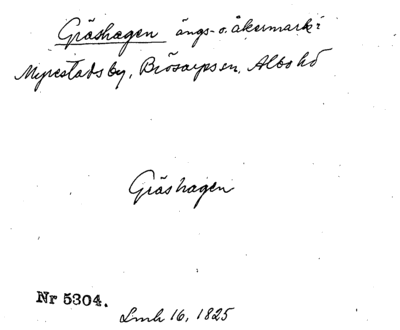 Gräshagen ängs- o. åkermark i
Myrestads by, Brösarps sn, Albo hd
Gräshagen
Nr 5304.
Lmh 16, 1825